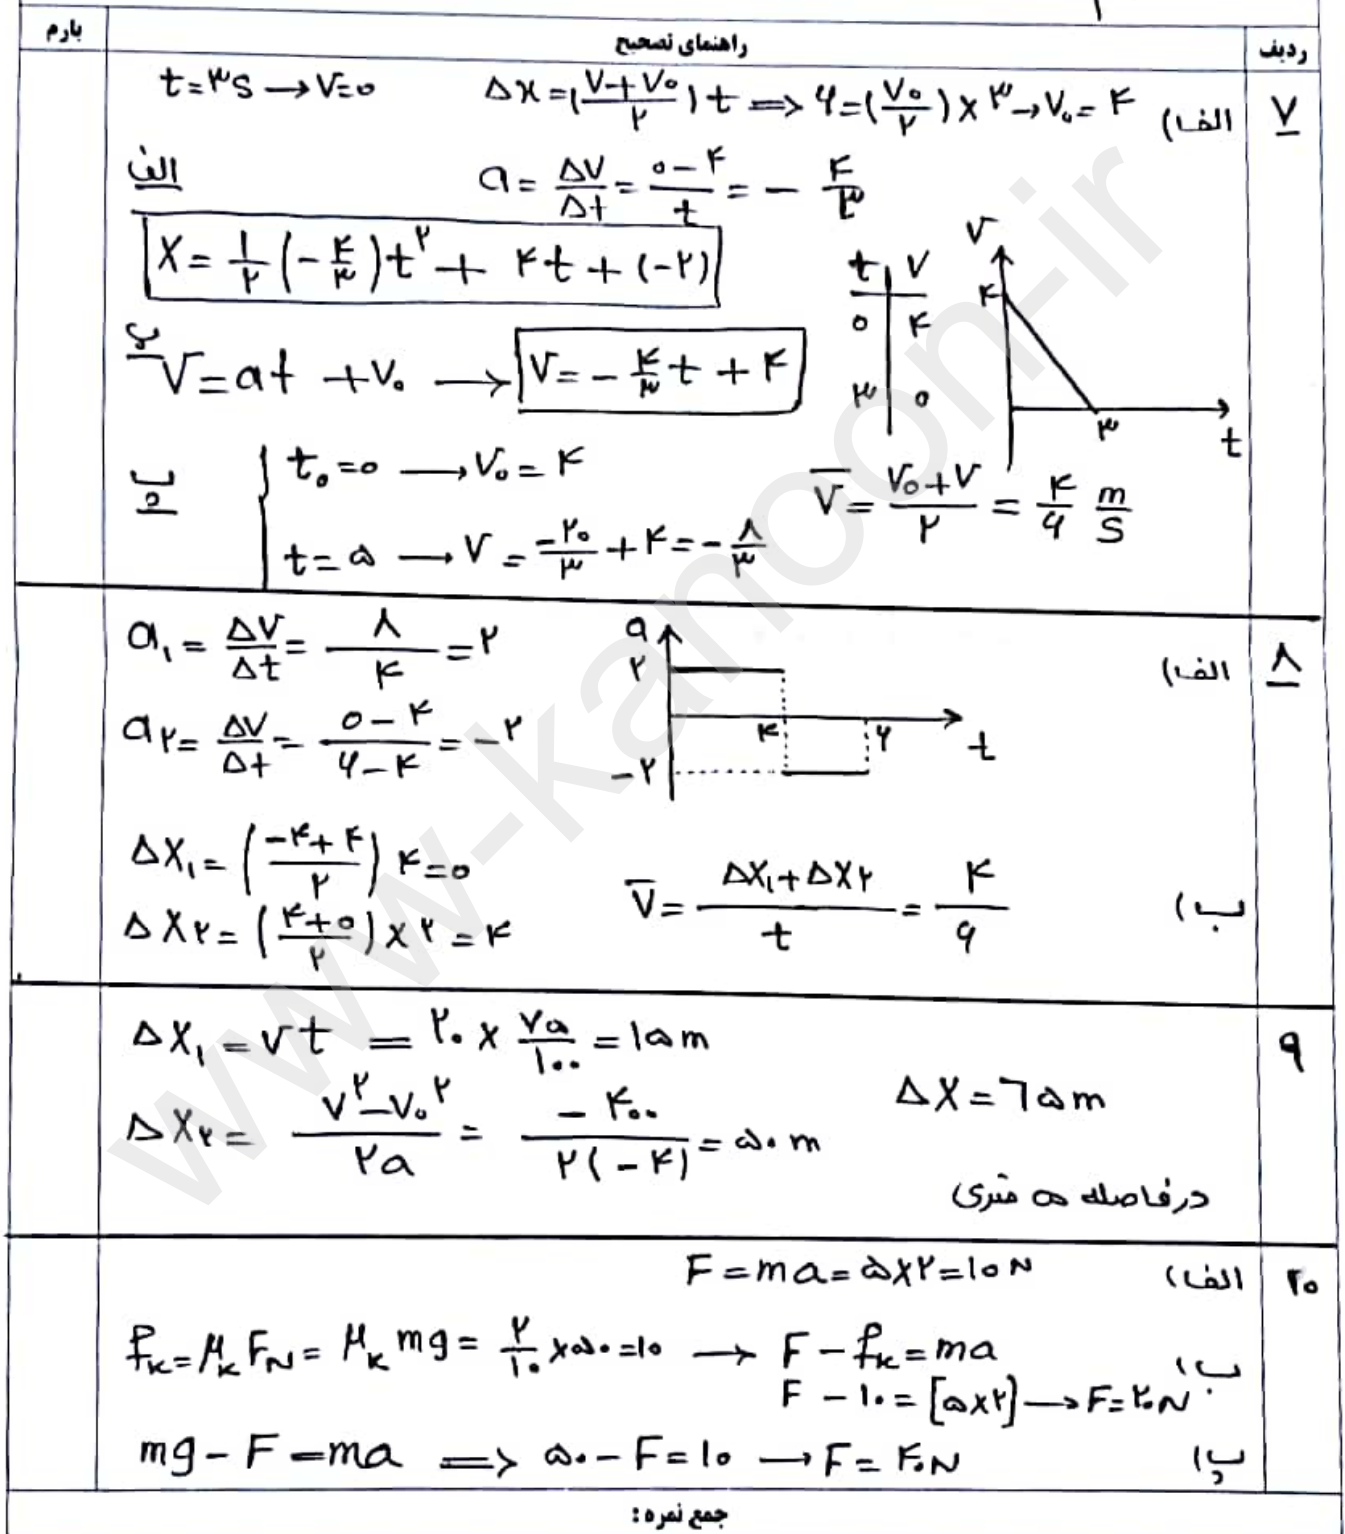 ردیف راهنمای تصحیح بارم
۷ الف) Δx = (V+V₀/۲) t ⟹ ۶ = (V₀/۲) × ۳ → V₀ = ۴ t=۳s → V=۰
الف a = ΔV/Δt = ۰-۴/t = - ۴/۳
X = ۱/۲ (-۴/۳) t² + ۴t + (-۲)
t V
۰ ۴
۳ ۰
V ۴ ۳ t
ب V = at + V₀ → V = -۴/۳ t + ۴
پ t₀=۰ → V₀=۴
t=۵ → V = -۲۰/۳ + ۴ = -۸/۳
V̅ = V₀+V/۲ = ۴/۶ m/s
۸ الف) a₁ = ΔV/Δt = ۸/۴ = ۲
a۲ = ΔV/Δt = ۰-۴/۶-۴ = -۲
a ۲ -۲ ۴ ۶ t
ب) ΔX₁ = (-۴+۴/۲) ۴=۰
ΔX۲ = (۴+۰/۲) × ۲ = ۴
V̅ = ΔX₁+ΔX۲/t = ۴/۶
۹ ΔX₁ = vt = ۲۰ × ۷۵/۱۰۰ = ۱۵m
ΔX۲ = V²-V₀²/۲a = -۴۰۰/۲(-۴) = ۵۰ m
ΔX = ۶۵m
درفاصله ۵۰ متری
۲۰ الف) F = ma = ۵×۲ = ۱۰N
ب) fₖ = μₖ Fₙ = μₖ mg = ۲/۱۰ × ۵۰ = ۱۰ → F - fₖ = ma
F - ۱۰ = [۵×۲] → F = ۲۰N
پ) mg - F = ma ⟹ ۵۰ - F = ۱۰ → F = ۴۰N
جمع نمره :
www-kanoon-ir